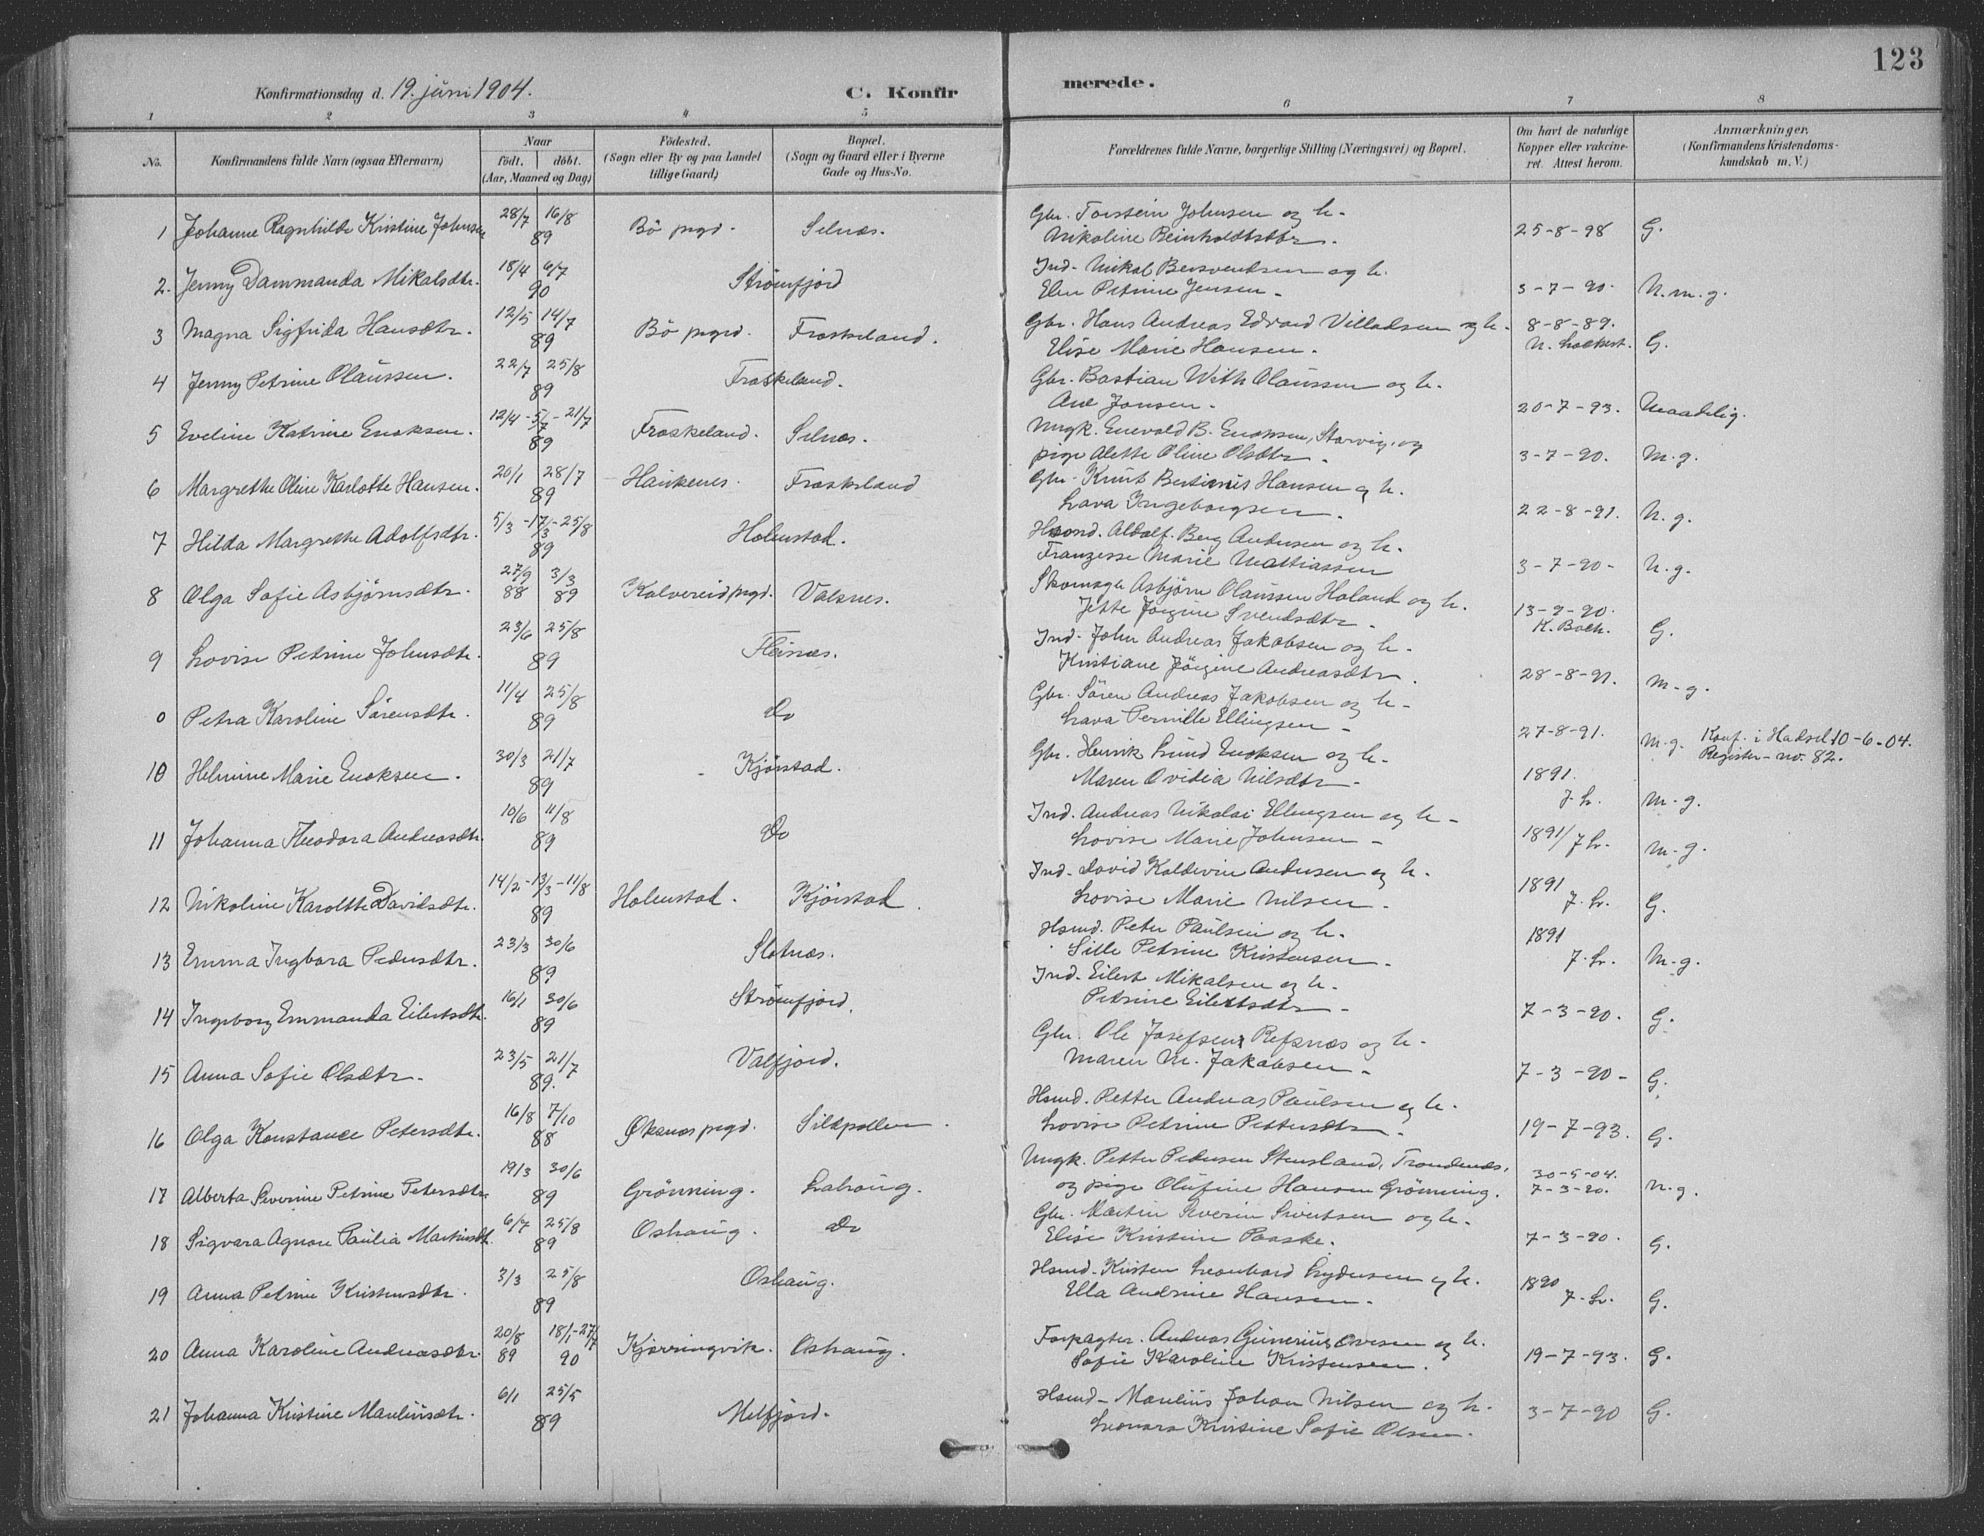 123
Konfirmationsdag d. 19. juni 1904. C. Konfirmerede.
1 2 3 4 5 6 7 8
No. Konfirmandens fulde Navn (ogsaa Efternavn) Naar født. døbt. (Aar, Maaned og Dag) Födested. (Sogn eller By og paa Landet tillige Gaard) Bopæl. (Sogn og Gaard eller i Byerne Gade og Hus-No. Forældrenes fulde Navne, borgerlige Stilling (Næringsvei) og Bopæl. Om havt de naturlige Kopper eller vakcineret. Attest herom. Anmærkninger, (Konfirmandens Kristendomskundskab m. V.)
1 Johanne Ragnhilde Kristine Johnsen 28/7 16/8 89 Bö prgd. Selnæs. Gbr. Torstein Johnsen og h. Nikoline Beinholdtsdtr. 25-8-98 G.
2. Jenny Dammanda Mikalsdtr. 18/4 6/7 90 Strömfjord Ind. Mikal Bersvendsen og h. Elen Petrine Jensen 3-7-90. N.m.g.
3 Magna Sigfrida Hansdtr. 12/5 14/7 89 Bö prgd. Fraskeland. Gbr. Hans Andreas Edvard Villadsen og h. Elise Marie Hansen. 8-8-89. N. Lockert. G.
4 Jenny Petrine Olaussen. 22/7 25/8 89 Fraskeland. Gbr. Bastian With Olaussen og h. Ane Jonsen. 20-7-93. Maadelig.
5 Eveline Katrine Enoksen. 12/4-5/7-21/7 89 Fraskeland. Selnæs. Ungk. Enevold B. Enoksen, Starvig, og pige Alette Oline Olsdtr. 3-7-90. M.g.
6 Margrethe Oline Karlotte Hansen. 20/1 28/7 89 Haukenes. Fraskeland Gbr. Knut Bertinus Hansen og h. Lava Ingeborgsen. 22-8-91. N.g.
7 Hilda Margrethe Adolfsdtr. 5/3-17/3-25/8 89 Holmstad. Hsmd. Aldolf. Berg Andersen og h. Franzesse Marie Mattiassen 3-7-90- N.g.
8 Olga Sofie Asbjørnsdtr. 27/9 88 3/3 89 Kolvereid prgd. Valsnes. Skomagr Asbjörn Olaussen Holand og h. Jette Jörgine Svendsdtr. 13-9-90. K. Bach. G.
9 Lovise Petrine Johnsdtr. 23/6 25/8 89 Fleinæs. Ind. John Andreas Jakobsen og h. Kristiane Jörgine Andreasdtr. 28-8-91. M.g.
0 Petra Karoline Sörensdtr. 11/4 25/8 89 Do Gbr. Sören Andreas Jakobsen og h. Lava Pernille Ellingsen 27-8-91. M.g. Konf. i Hadsel 10-6-04. Register-no. 82.
10 Helmine Marie Enoksen. 30/3 21/7 89 Kjörstad. Gbr. Henrik Lund Enoksen og h. Maren Ovidia Nilsdtr. 1891. J. Lr. M.g.
11 Johanna Theodora Andreasdtr. 10/6 11/8 89 Do Ind. Andreas Nikolai Ellingsen og h. Lovise Marie Johnsen 1891/ J Lr. M.g.
12 Nikoline Karoltte Davidsdtr. 14/2-13/3-11/8 89 Holmstad. Kjörstad. Ind. David Kaldevin Andersen og h. Lovise Marie Nilsen. 1891 J. Lr. G.
13 Emma Ingbora Pedersdtr. 23/3 30/6 89 Slotnæs. Hsmd. Peter Paulsen og h. Sille Petrine Kristensen 1891 J. Lr. M.g.
14 Ingeborg Emmanda Eilertsdtr. 16/1 30/6 89 Strömfjord. Ind. Eilert Mikalsen og h. Petrine Eilertsdtr 7-3-90. G.
15 Anna Sofie Olsdtr. 23/5 21/7 89. Valfjord. Gbr. Ole Josefsen, Refsnæs og h. Maren M. Jakobsen 7-3-90- G.
16 Olga Konstance Petersdtr. 16/8 7/10 88 Øksnes prgd. Sildpollen. Hsmd. Petter Andreas Paulsen og h. Lovise Petrine Pettersdtr. 19-7-93. G.
17 Alberta Severine Petrine Petersdtr 19/3 30/6 89 Grönning. Lahaug. Ungk. Petter Pedersen Stensland, Trondenæs, og pige Olufine Hansen Grönning. 30-5-04. 7-3-90. N.g.
18 Sigvara Agnore Paulia Martinsdtr. 6/7 25/8 89 Oshaug. Do Gbr. Martin Severin Sivertsen og h. Elise Kristine Paaske. 7-3-90. G.
19 Anna Petrine Kristensdtr. 3/3 25/8 89 Oshaug. Hsmd. Kristen Leonhard Lydersen og h. Ella Andrine Hansen. 1890 J. Lr. G.
20 Anna Karoline Andreasdtr. 20/8 89 18/1-27/7 90 Kjørringvik. Oshaug. Forpagter. Andreas Gunerius Ovesen og h. Sofie Karoline Kristensen. 19-7-93. G.
21 Johanna Kristine Mauliusdtr. 6/1 25/5 89 Melfjord. Hsmd. Maulius Johan Nilsen og h. Leonora Kristine Sofie Olsen. 3-7-90 G.